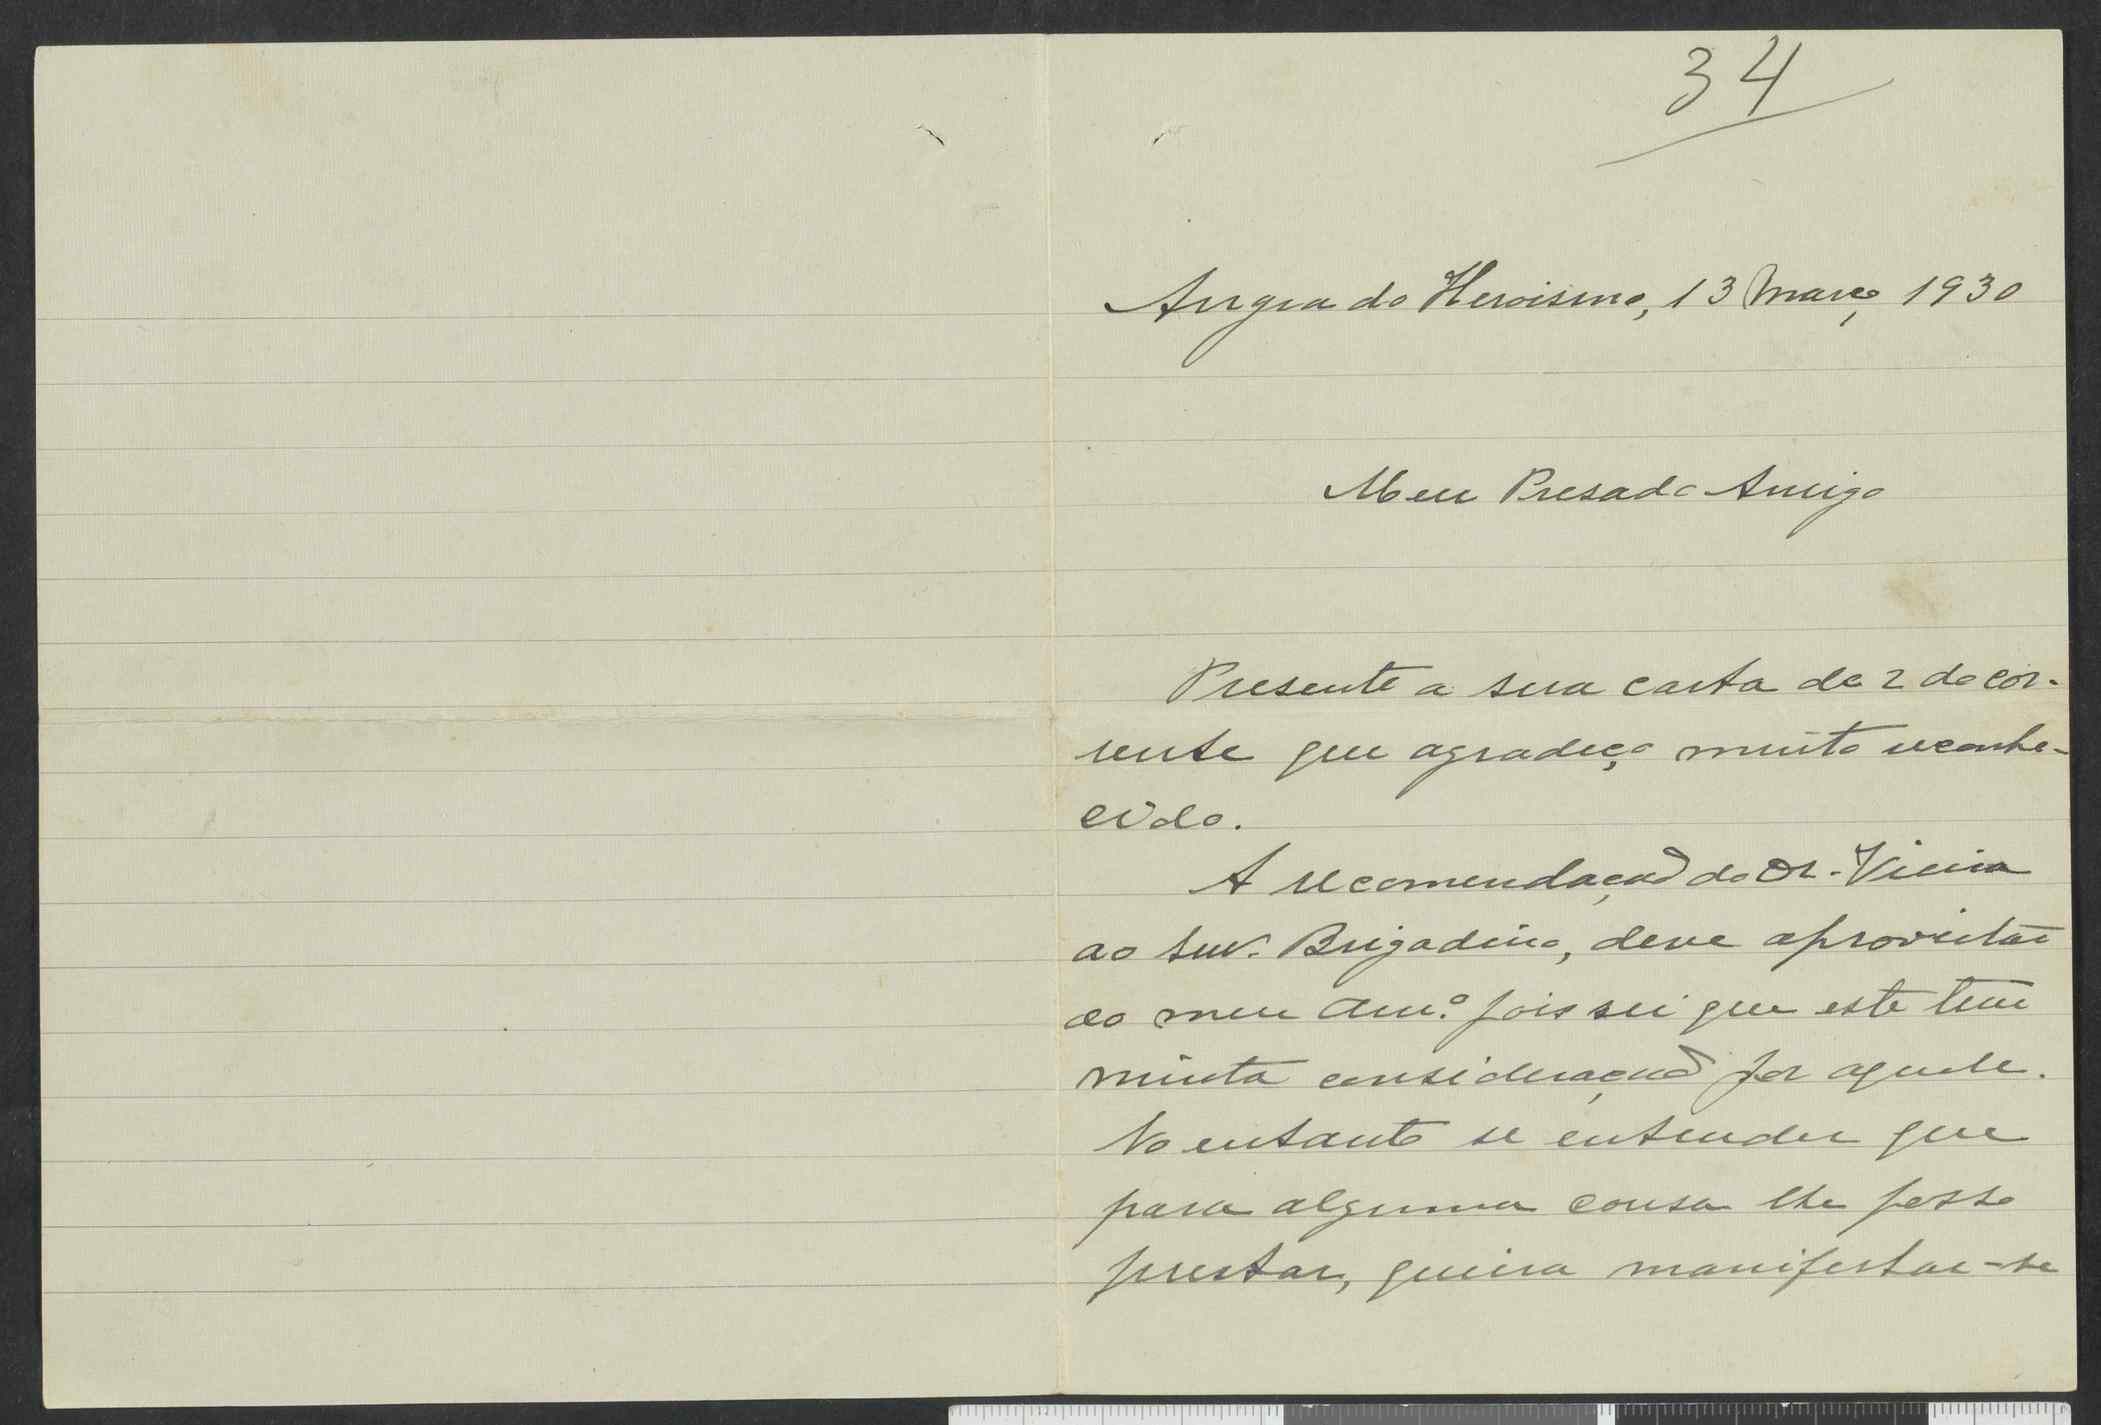 34
Angra do Heroismo, 13 Março 1930
Meu Presado Amigo
Presente a sua carta de 2 do cor-
rente que agradeço muito reconhe-
cido.
A recomendação do Dr. Vieira
ao Brigadeiro, deve aproveitar
ao meu Am.º pois sei que este tem
muita consideração por aquele.
No entanto se entender que
para alguma cousa lhe posso
prestar, queira manifestar-se